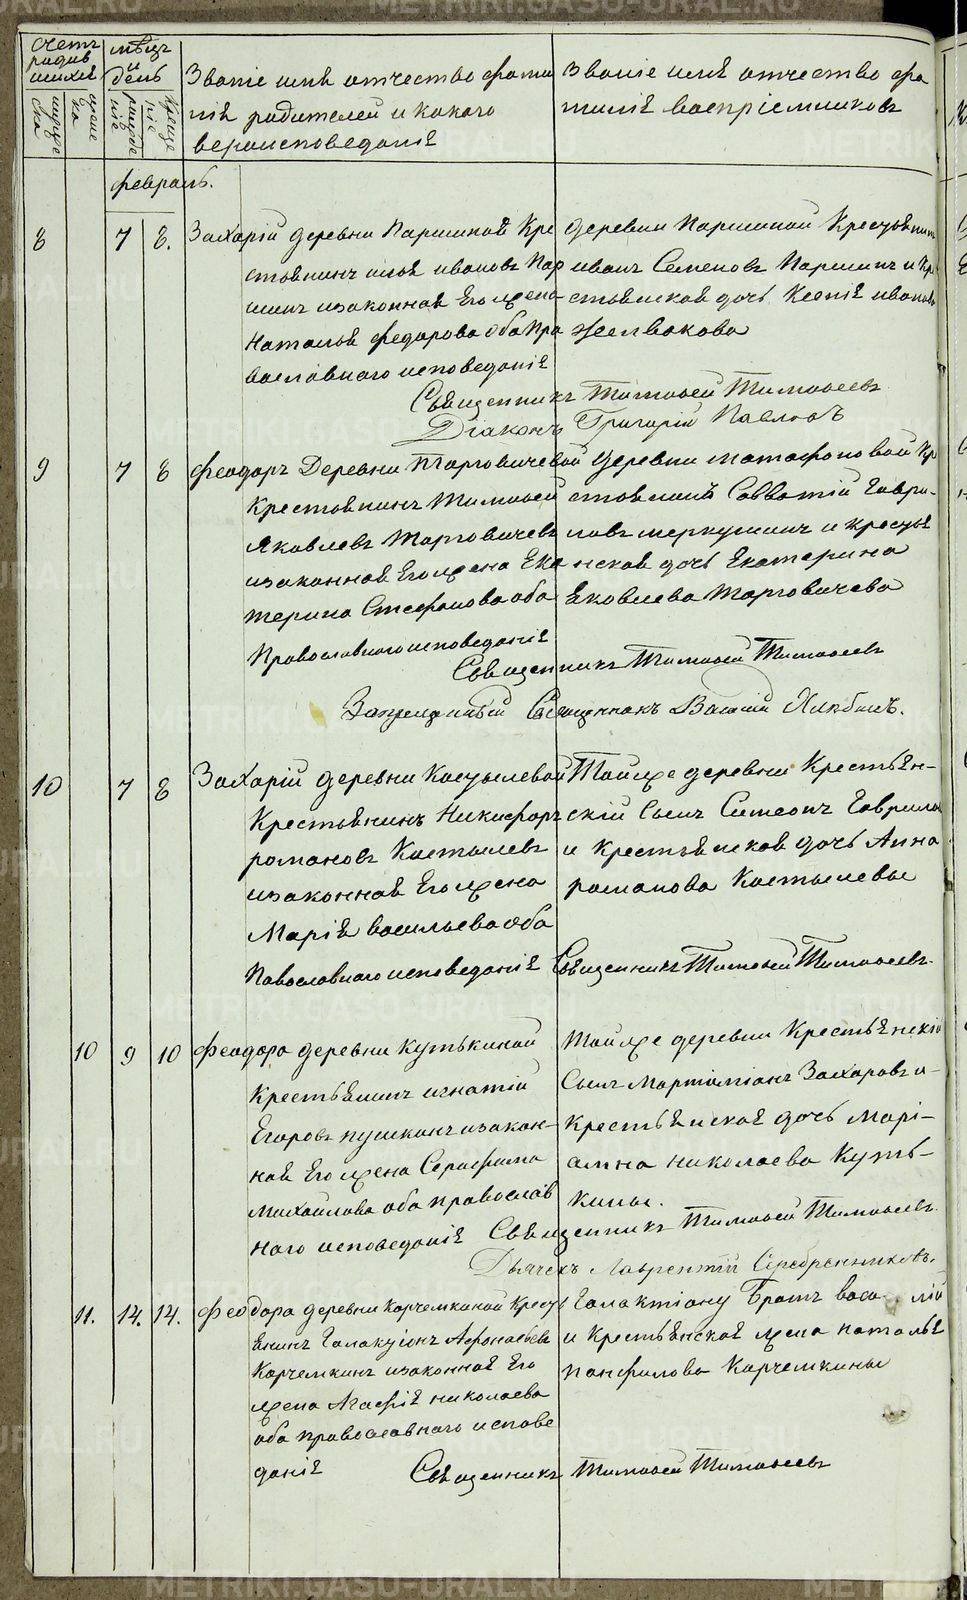 Счетъ родив шихсѧ
мѣсяц и день
Званіе имѧ отчество фами
ліѧ родителей и какого
вероисповеданіѧ
Званіе имѧ отчество фа
миліѧ воспріемниковъ
мужеска
женска
рождені
крещеніе
февраль.
8 7 8. Захарій деревни Паршиной Кре
стьѧнинъ илья ивановъ Пар
шинъ изаконнаѧ Его жена
Наталья федорова оба Пра
вославнаго исповеданіѧ
деревни Паршиной Крестьѧнин
иванъ Семеновъ Паршинъ и Кре
стьѧнскаѧ дочь Ксеніѧ иванова
Желвакова
Свѧщенникъ Тимофей Тимофеевъ
Діаконъ Григорій Павловъ
9 7 8 феодоръ Деревни Торговичевой
Крестьѧнинъ Тимофей
Яковлевъ Торговичевъ
изаконнаѧ Его жена Ека
терина Стефанова оба
Православнаго исповеданіѧ
деревни Матафоновой Кр
стьѧнинъ Савватій Гаври-
ловъ меркушинъ и крестьѧ
нскаѧ дочь Екатерина
Ѧковлева Торговичева
Свѧщенникъ Тимофей Тимофеевъ
Запрещенный Священникъ Василій
10 7 8 Захарій деревни Костылевой
Крестьѧнинъ Никифоръ
романовъ Костылевъ
изаконнаѧ Его жена
Маріѧ васильева оба
Павославнаго исповеданіѧ
Той же деревни Крестьѧн-
скій Сынъ Симеонъ Гаврилов
и Крестьѧнскаѧ дочь Анна
романова Костылевы
Свѧщенникъ Тимофей Тимофеевъ.
10 9 10 Феодора деревни Кутькиной
Крестьѧнинъ игнатій
Егоровъ пушкинъ изакон-
наѧ Его жена Серафима
Михайлова оба православ
наго исповеданіѧ
Той же деревни Крестьѧнскій
Сынъ Мартиміанъ Захаровъ и-
Крестьѧнскаѧ дочь Марі-
амна николаева Куть-
кины.
Свѧщенникъ Тимофей Тимофеевъ.
Дьячекъ Лаврентій Серебренниковъ.
11. 14. 14. Феодора деревни Корчемкиной Кресть
ѧнинъ Галактіонъ Афонасьевъ
Корчемкинъ изаконнаѧ Его
жена Агафіѧ николаева
оба православнаго испове
даніѧ
Галактіону Братъ васи лій
и Крестьѧнскаѧ жена Наталья
панфилова Корчемкины
Свѧщенникъ Тимофей Тимофеевъ
METRIKI.GASO-URAL.RU